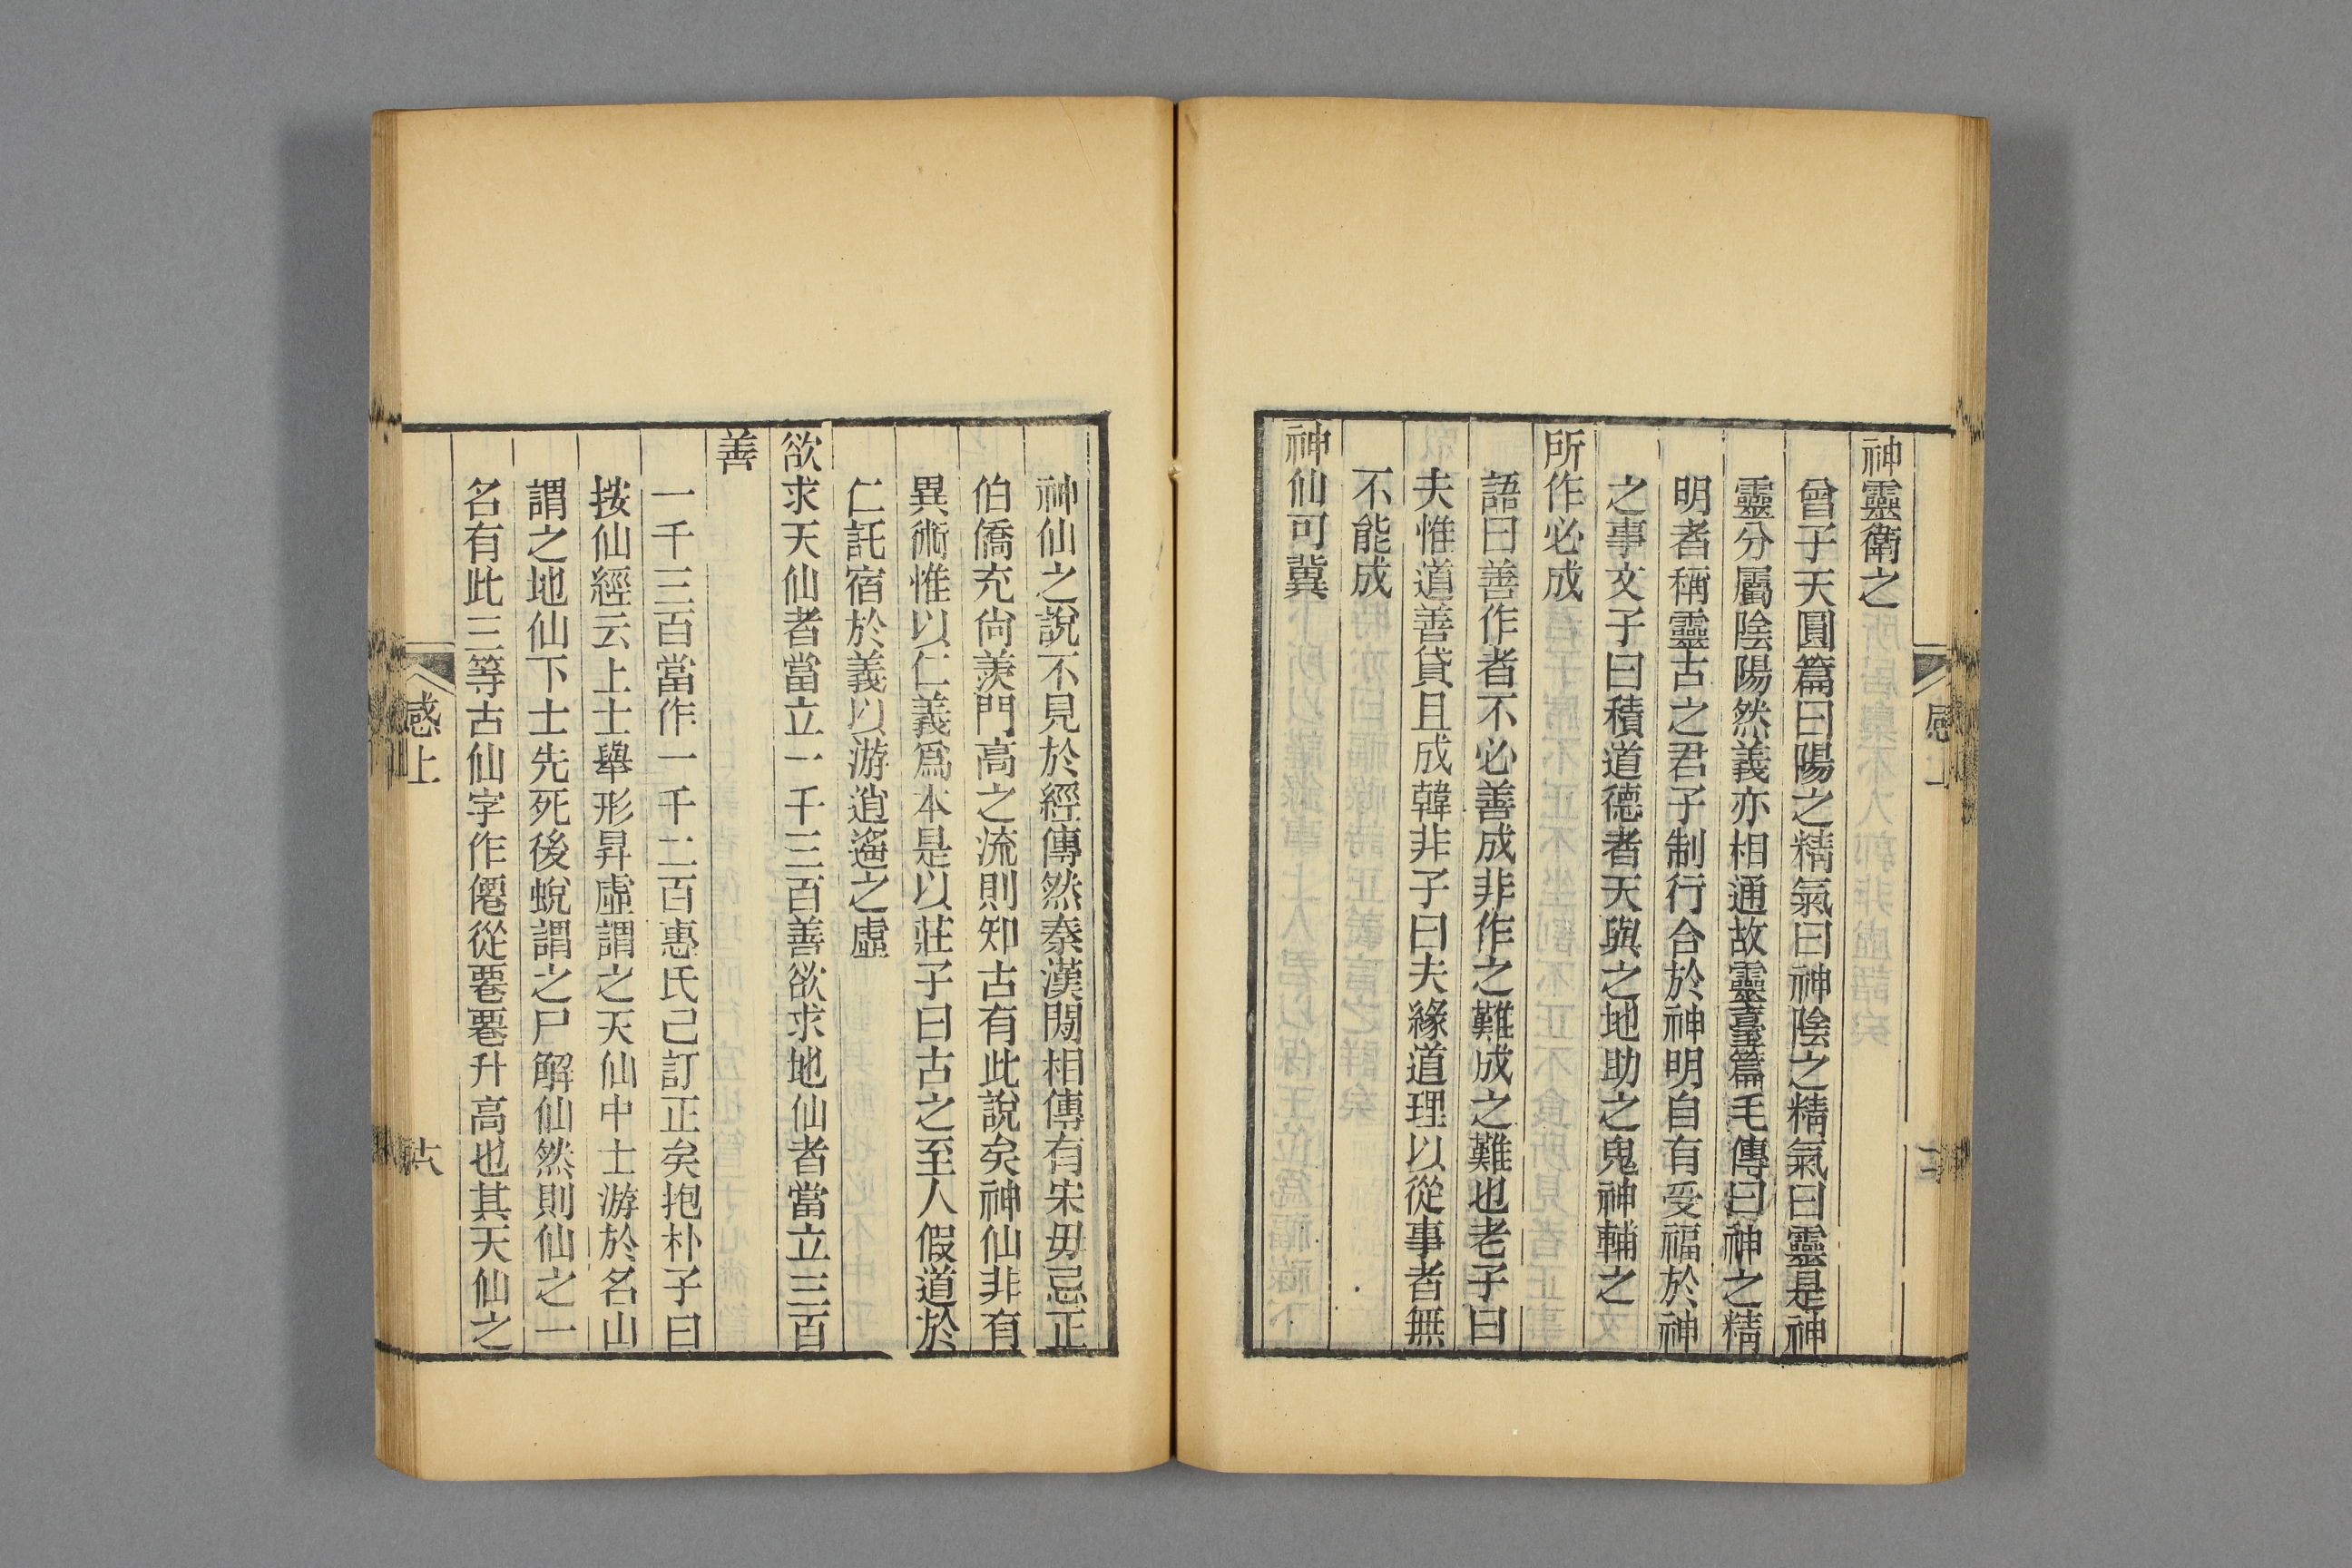 神靈衛之
曾子天圓篇曰陽之精氣曰神陰之精氣曰靈是神
靈分屬陰陽然義亦相通故靈臺篇毛傳曰神之精
明者稱靈古之君子制行合於神明自有受福於神
之事文子曰積道德者天與之地助之鬼神輔之
所作必成
語曰善作者不必善成非作之難成之難也老子曰
夫惟道善貸且成韓非子曰夫緣道理以從事者無
不能成
神仙可冀
神仙之說不見於經傳然秦漢閒相傳有宋毋忌正
伯僑充尚羡門高之流則知古有此說矣神仙非有
異術惟以仁義爲本是以莊子曰古之至人假道於
仁託宿於義以游逍遙之虛
欲求天仙者當立一千三百善欲求地仙者當立三百
善
一千三百當作一千二百惠氏已訂正矣抱朴子曰
按仙經云上士舉形昇虛謂之天仙中士游於名山
謂之地仙下士先死後蛻謂之尸解仙然則仙之一
名有此三等古仙字作僊從䙴䙴升高也其天仙之
感上
六